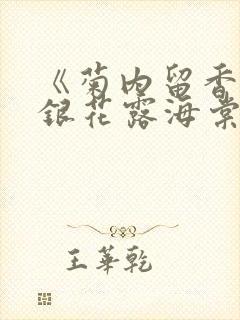 《菊内留香
银花露海棠
王华乾